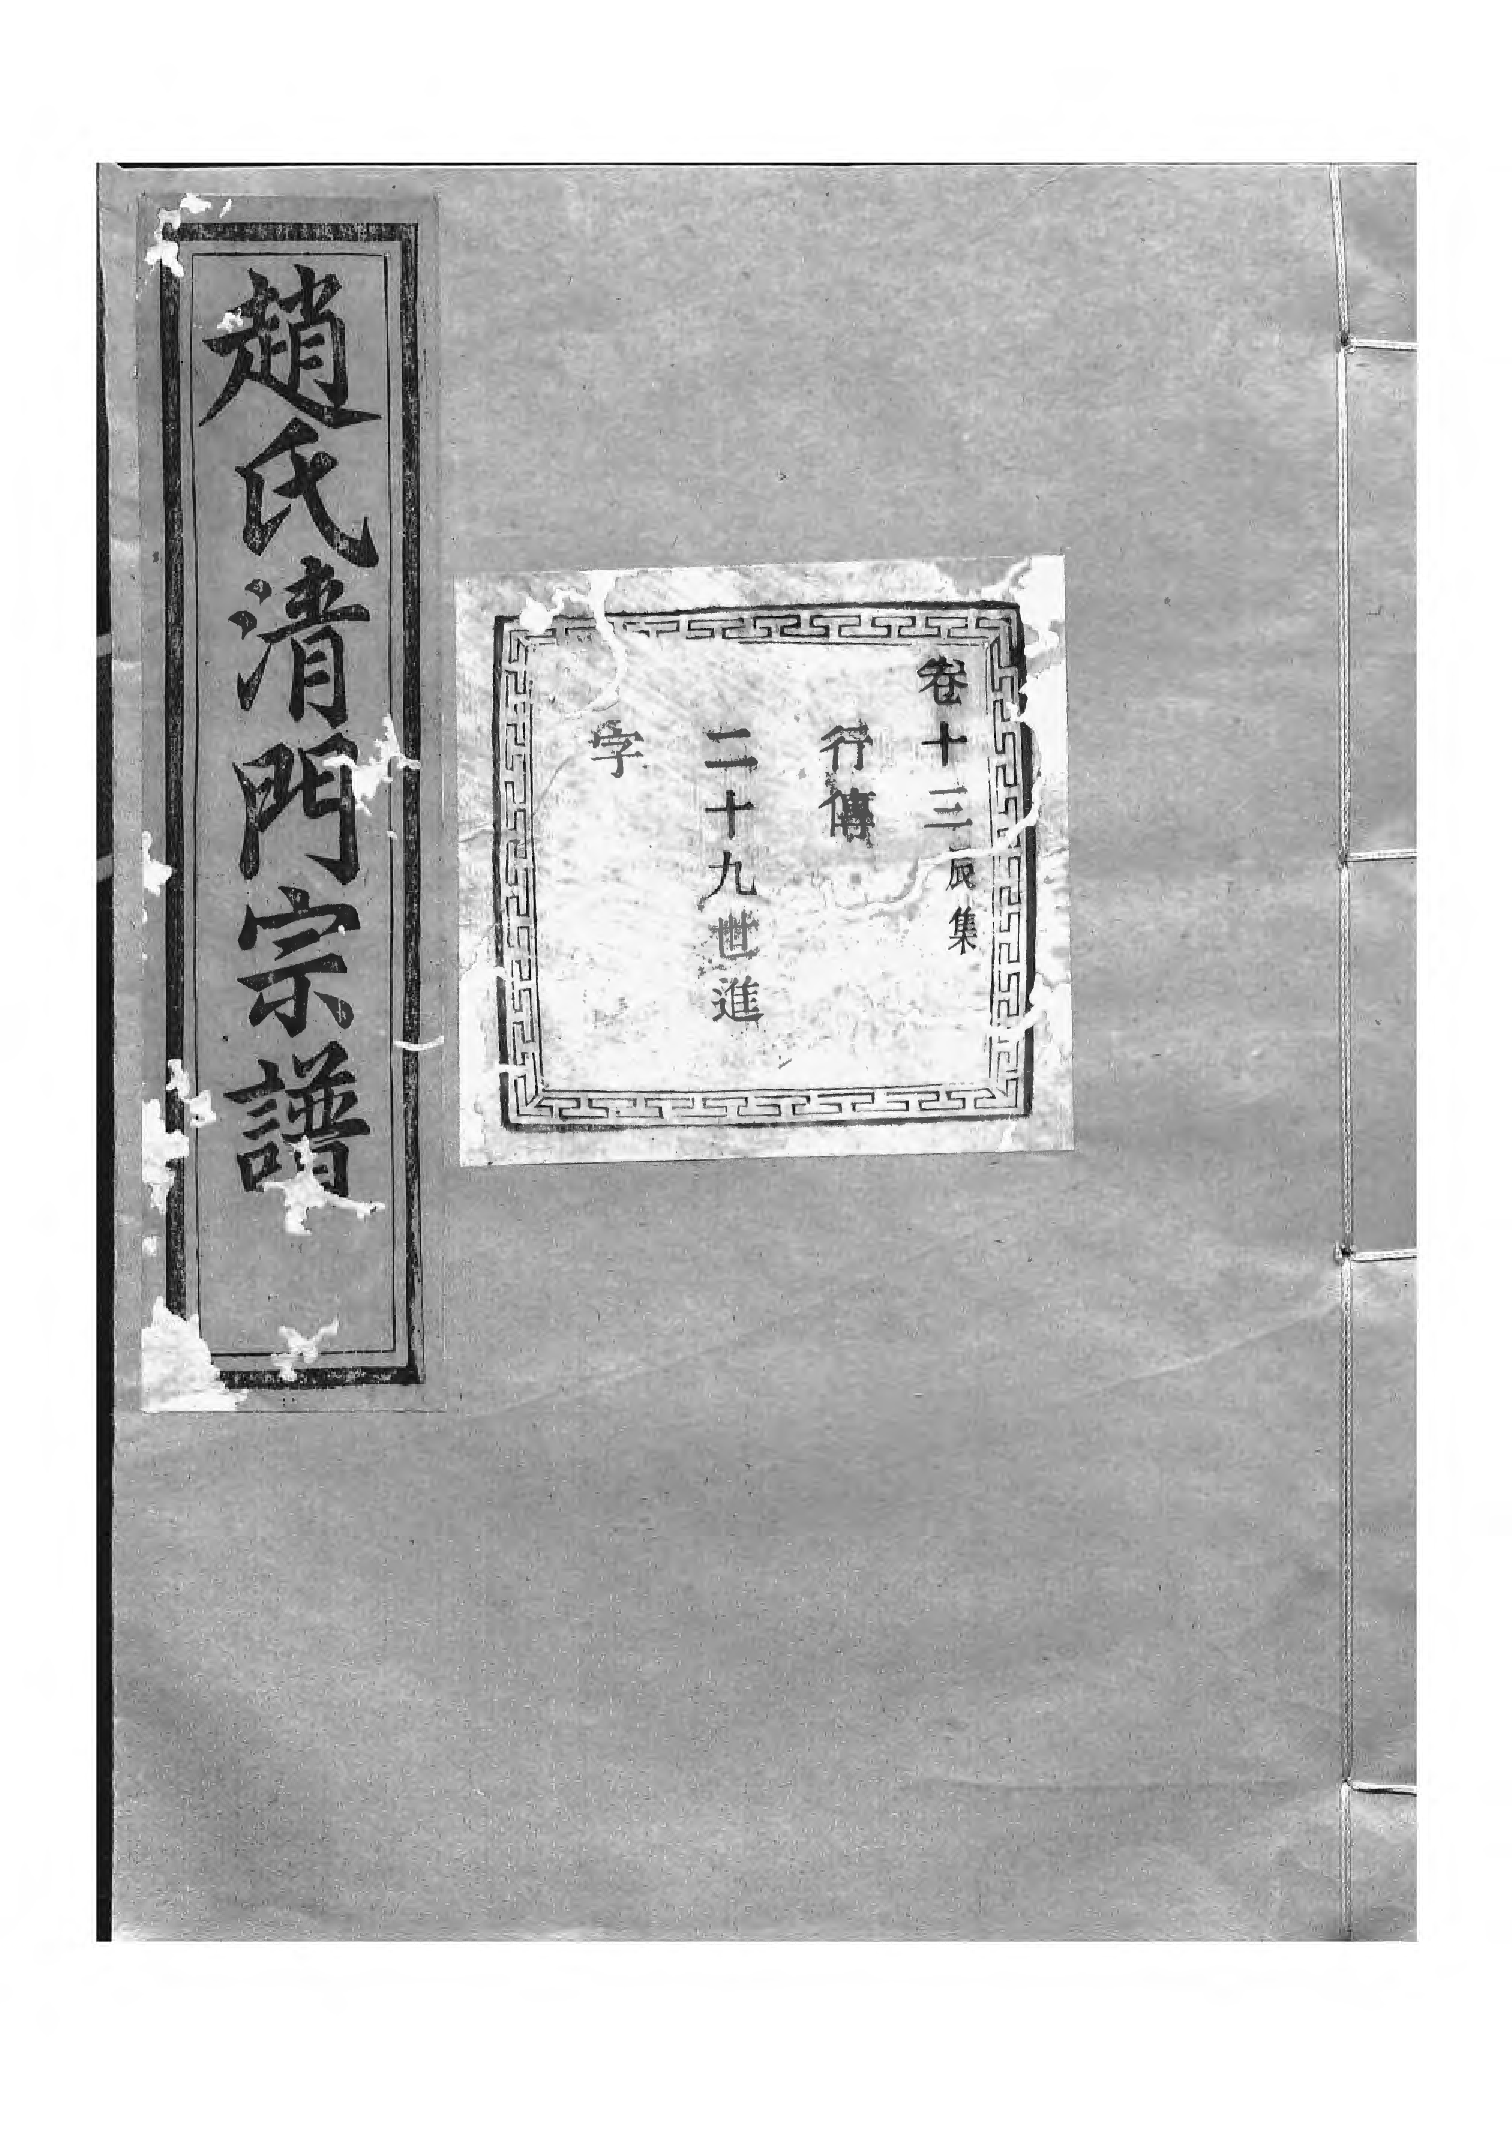 卷十三辰集
行傳
二十九世進
字
趙氏清門宗譜